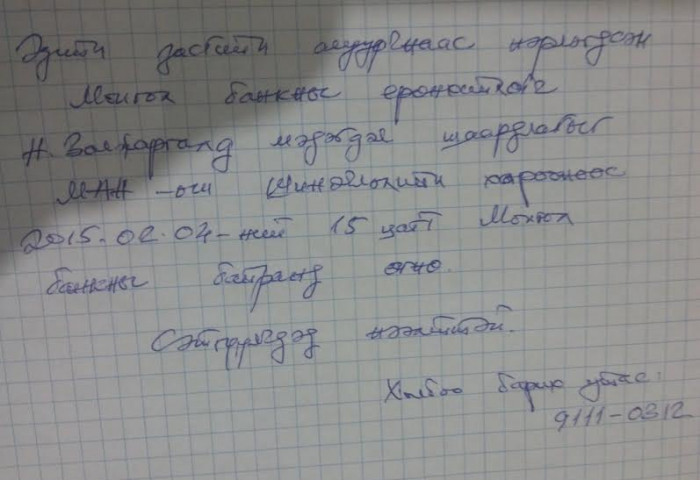 Эдийн засгийн аюулаас нэрлэгдсэн
Монгол банкны ерөнхийлөгч
Н. Золжаргалд мэдэгдэл шаардлагыг
МАН-ын Шинэчлэлийн хорооноос
2015.02.04-ний 15 цагт Монгол
банкны байранд өгнө.
Сэтгүүлчдэд нээлттэй.
Холбоо барих утас:
9111-0312